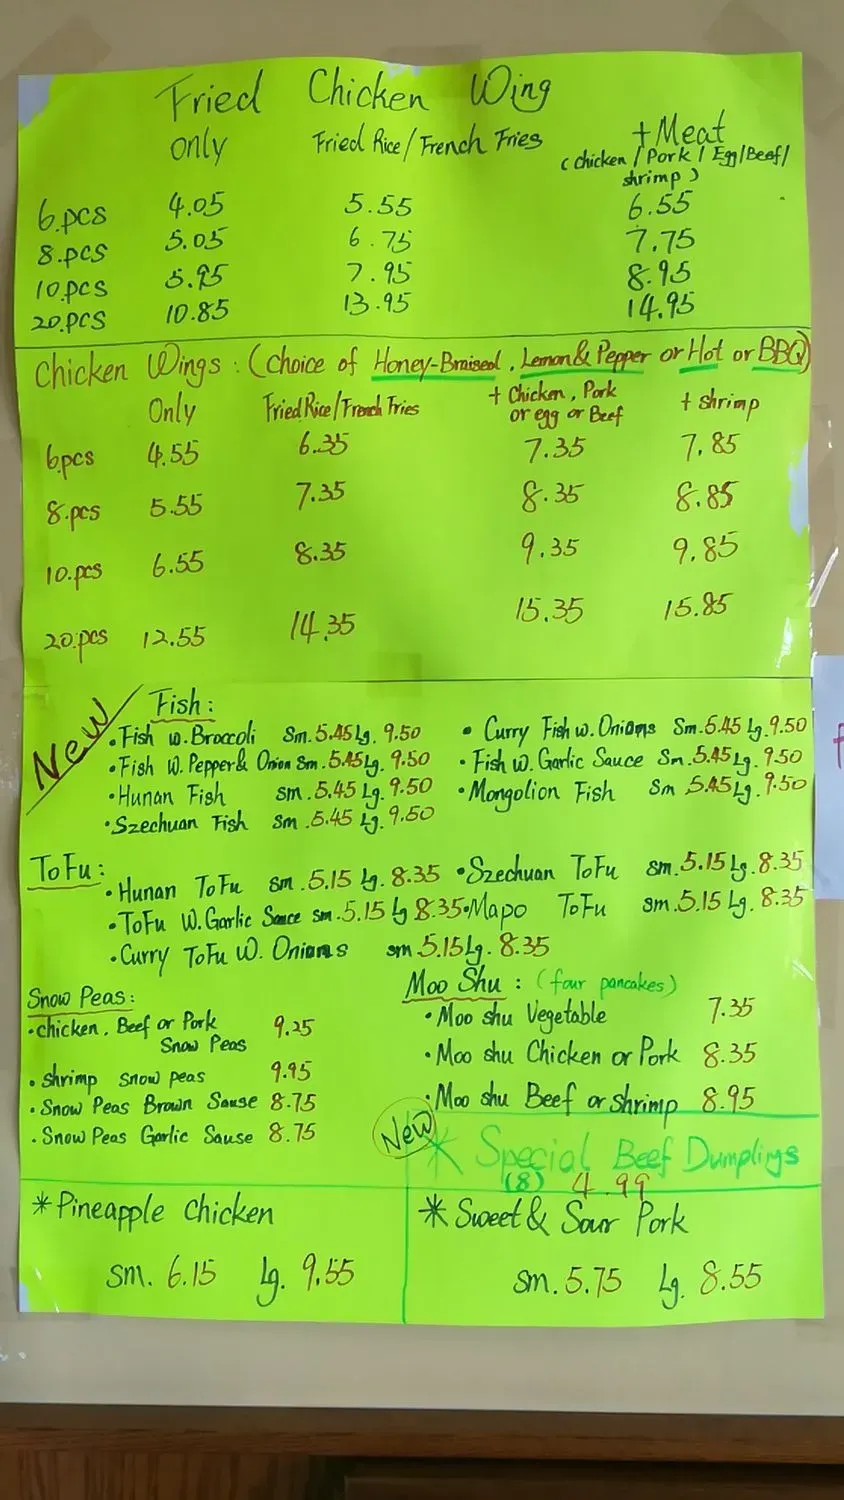 Fried Chicken Wing
only Fried Rice/French Fries + Meat
(chicken/Pork/Egg/Beef/
shrimp)
6.pcs 4.05 5.55 6.55
8.pcs 5.05 6.75 7.75
10.pcs 5.95 7.95 8.95
20.pcs 10.85 13.95 14.95
Chicken Wings: (Choice of Honey-Braised, Lemon & Pepper or Hot or BBQ)
Only Fried Rice/French Fries + Chicken, Pork + shrimp
or egg or Beef
6pcs 4.55 6.35 7.35 7.85
8.pcs 5.55 7.35 8.35 8.85
10.pcs 6.55 8.35 9.35 9.85
20.pcs 12.55 14.35 15.35 15.85
New
Fish:
• Fish w. Broccoli Sm. 5.45 Lg. 9.50 • Curry Fish w. Onions Sm. 5.45 Lg. 9.50
• Fish W. Pepper & Onion Sm. 5.45 Lg. 9.50 • Fish w. Garlic Sauce Sm. 5.45 Lg. 9.50
• Hunan Fish sm. 5.45 Lg. 9.50 • Mongolion Fish Sm 5.45 Lg. 9.50
• Szechuan Fish sm. 5.45 Lg. 9.50
ToFu:
• Hunan ToFu sm. 5.15 Lg. 8.35 • Szechuan ToFu sm. 5.15 Lg. 8.35
• ToFu W. Garlic Sauce sm. 5.15 Lg 8.35 • Mapo ToFu sm. 5.15 Lg. 8.35
• Curry ToFu W. Onions sm 5.15 Lg. 8.35
Snow Peas:
• chicken, Beef or Pork 9.25
Snow Peas
• shrimp snow peas 9.95
• Snow Peas Brown Sause 8.75
• Snow Peas Garlic Sause 8.75
Moo Shu: (four pancakes)
• Moo shu Vegetable 7.35
• Moo shu Chicken or Pork 8.35
• Moo shu Beef or shrimp 8.95
New
* Special Beef Dumplings
(8) 4.99
* Pineapple Chicken
sm. 6.15 Lg. 9.55
* Sweet & Sour Pork
sm. 5.75 Lg. 8.55